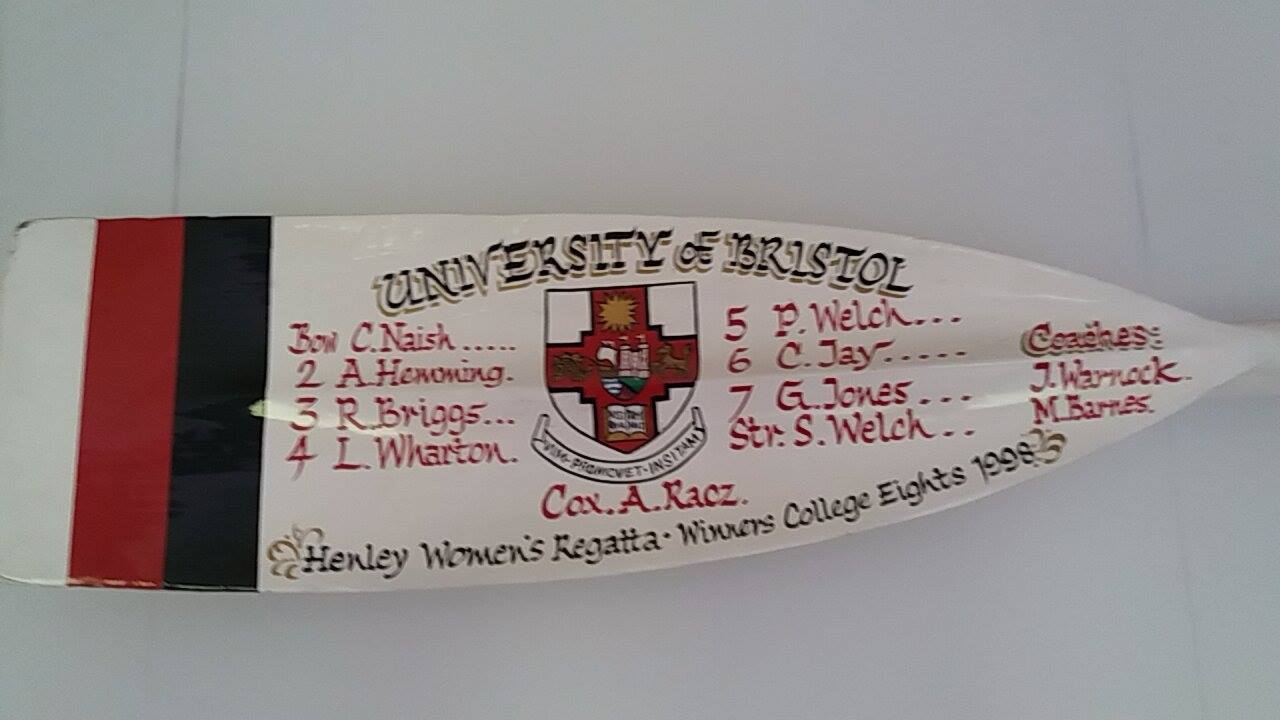 UNIVERSITY of BRISTOL
Bow C. Naish.....
2 A. Hemming.
3 R. Briggs...
4 L. Wharton.
5 P. Welch...
6 C. Jay.....
7 G. Jones...
Str. S. Welch..
Cox. A. Racz.
Coaches:
J. Warnock.
M. Barnes.
VIM·PROMOVET·INSITAM
Henley Women's Regatta · Winners College Eights 1998